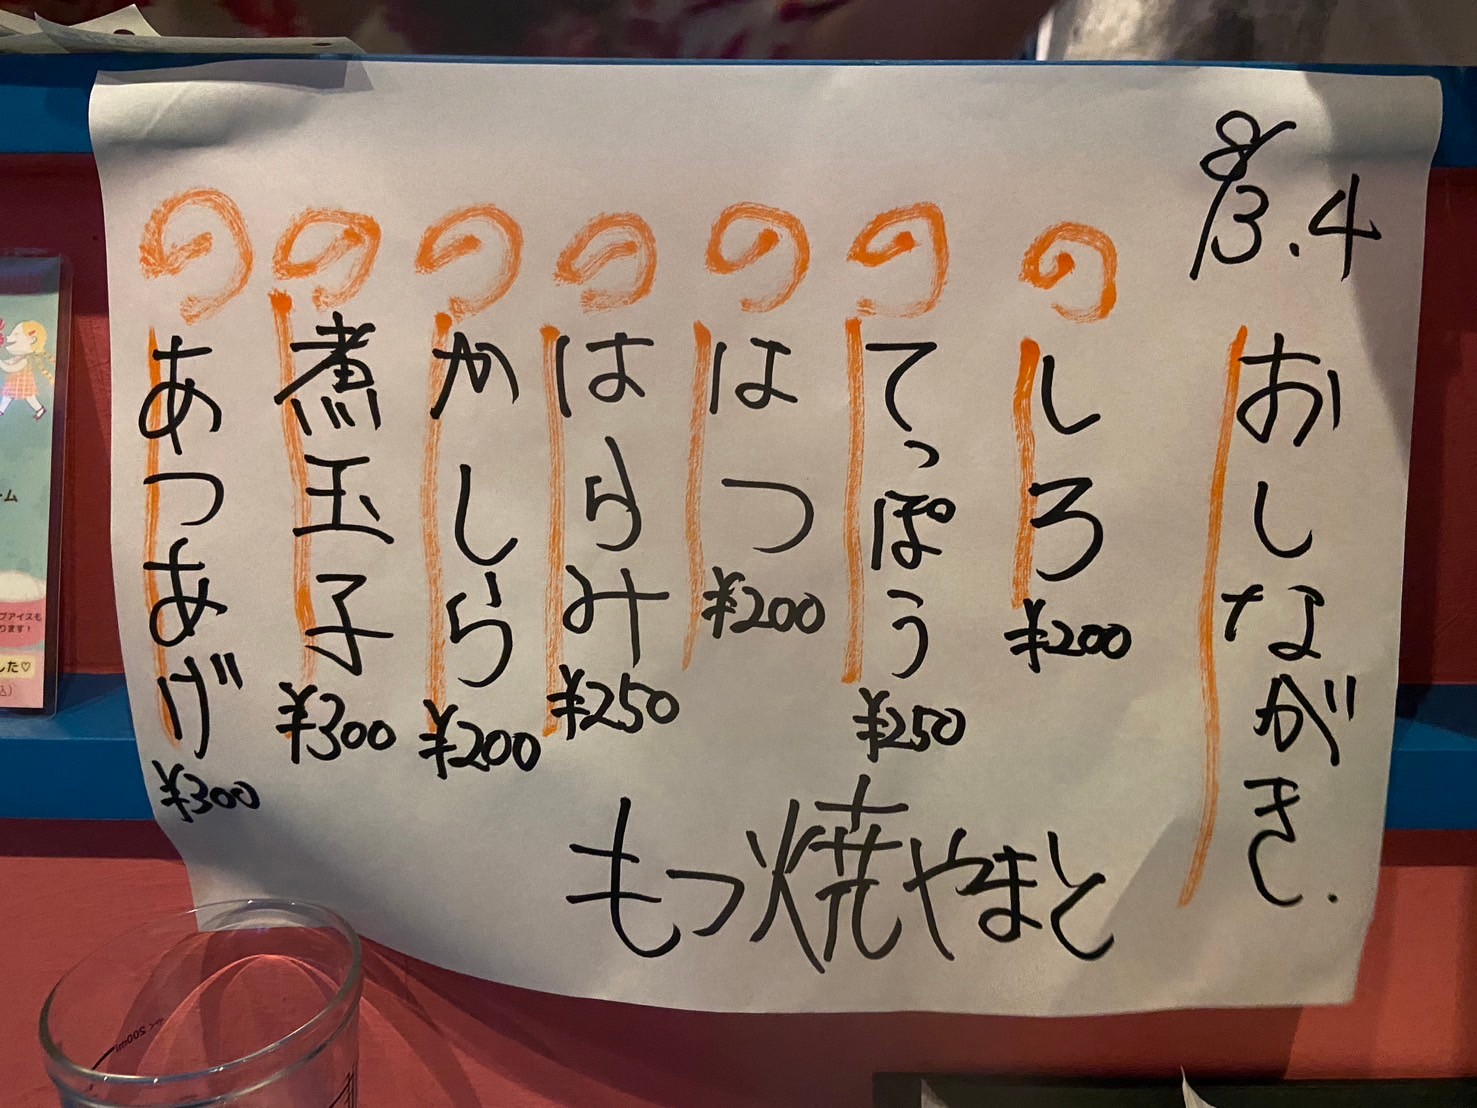 8/3.4
おしながき.
しろ ¥200
てっぽう ¥250
はつ ¥200
はらみ ¥250
かしら ¥200
煮玉子 ¥300
あつあげ ¥300
もつ焼やまと
ります!
した♡
500ml